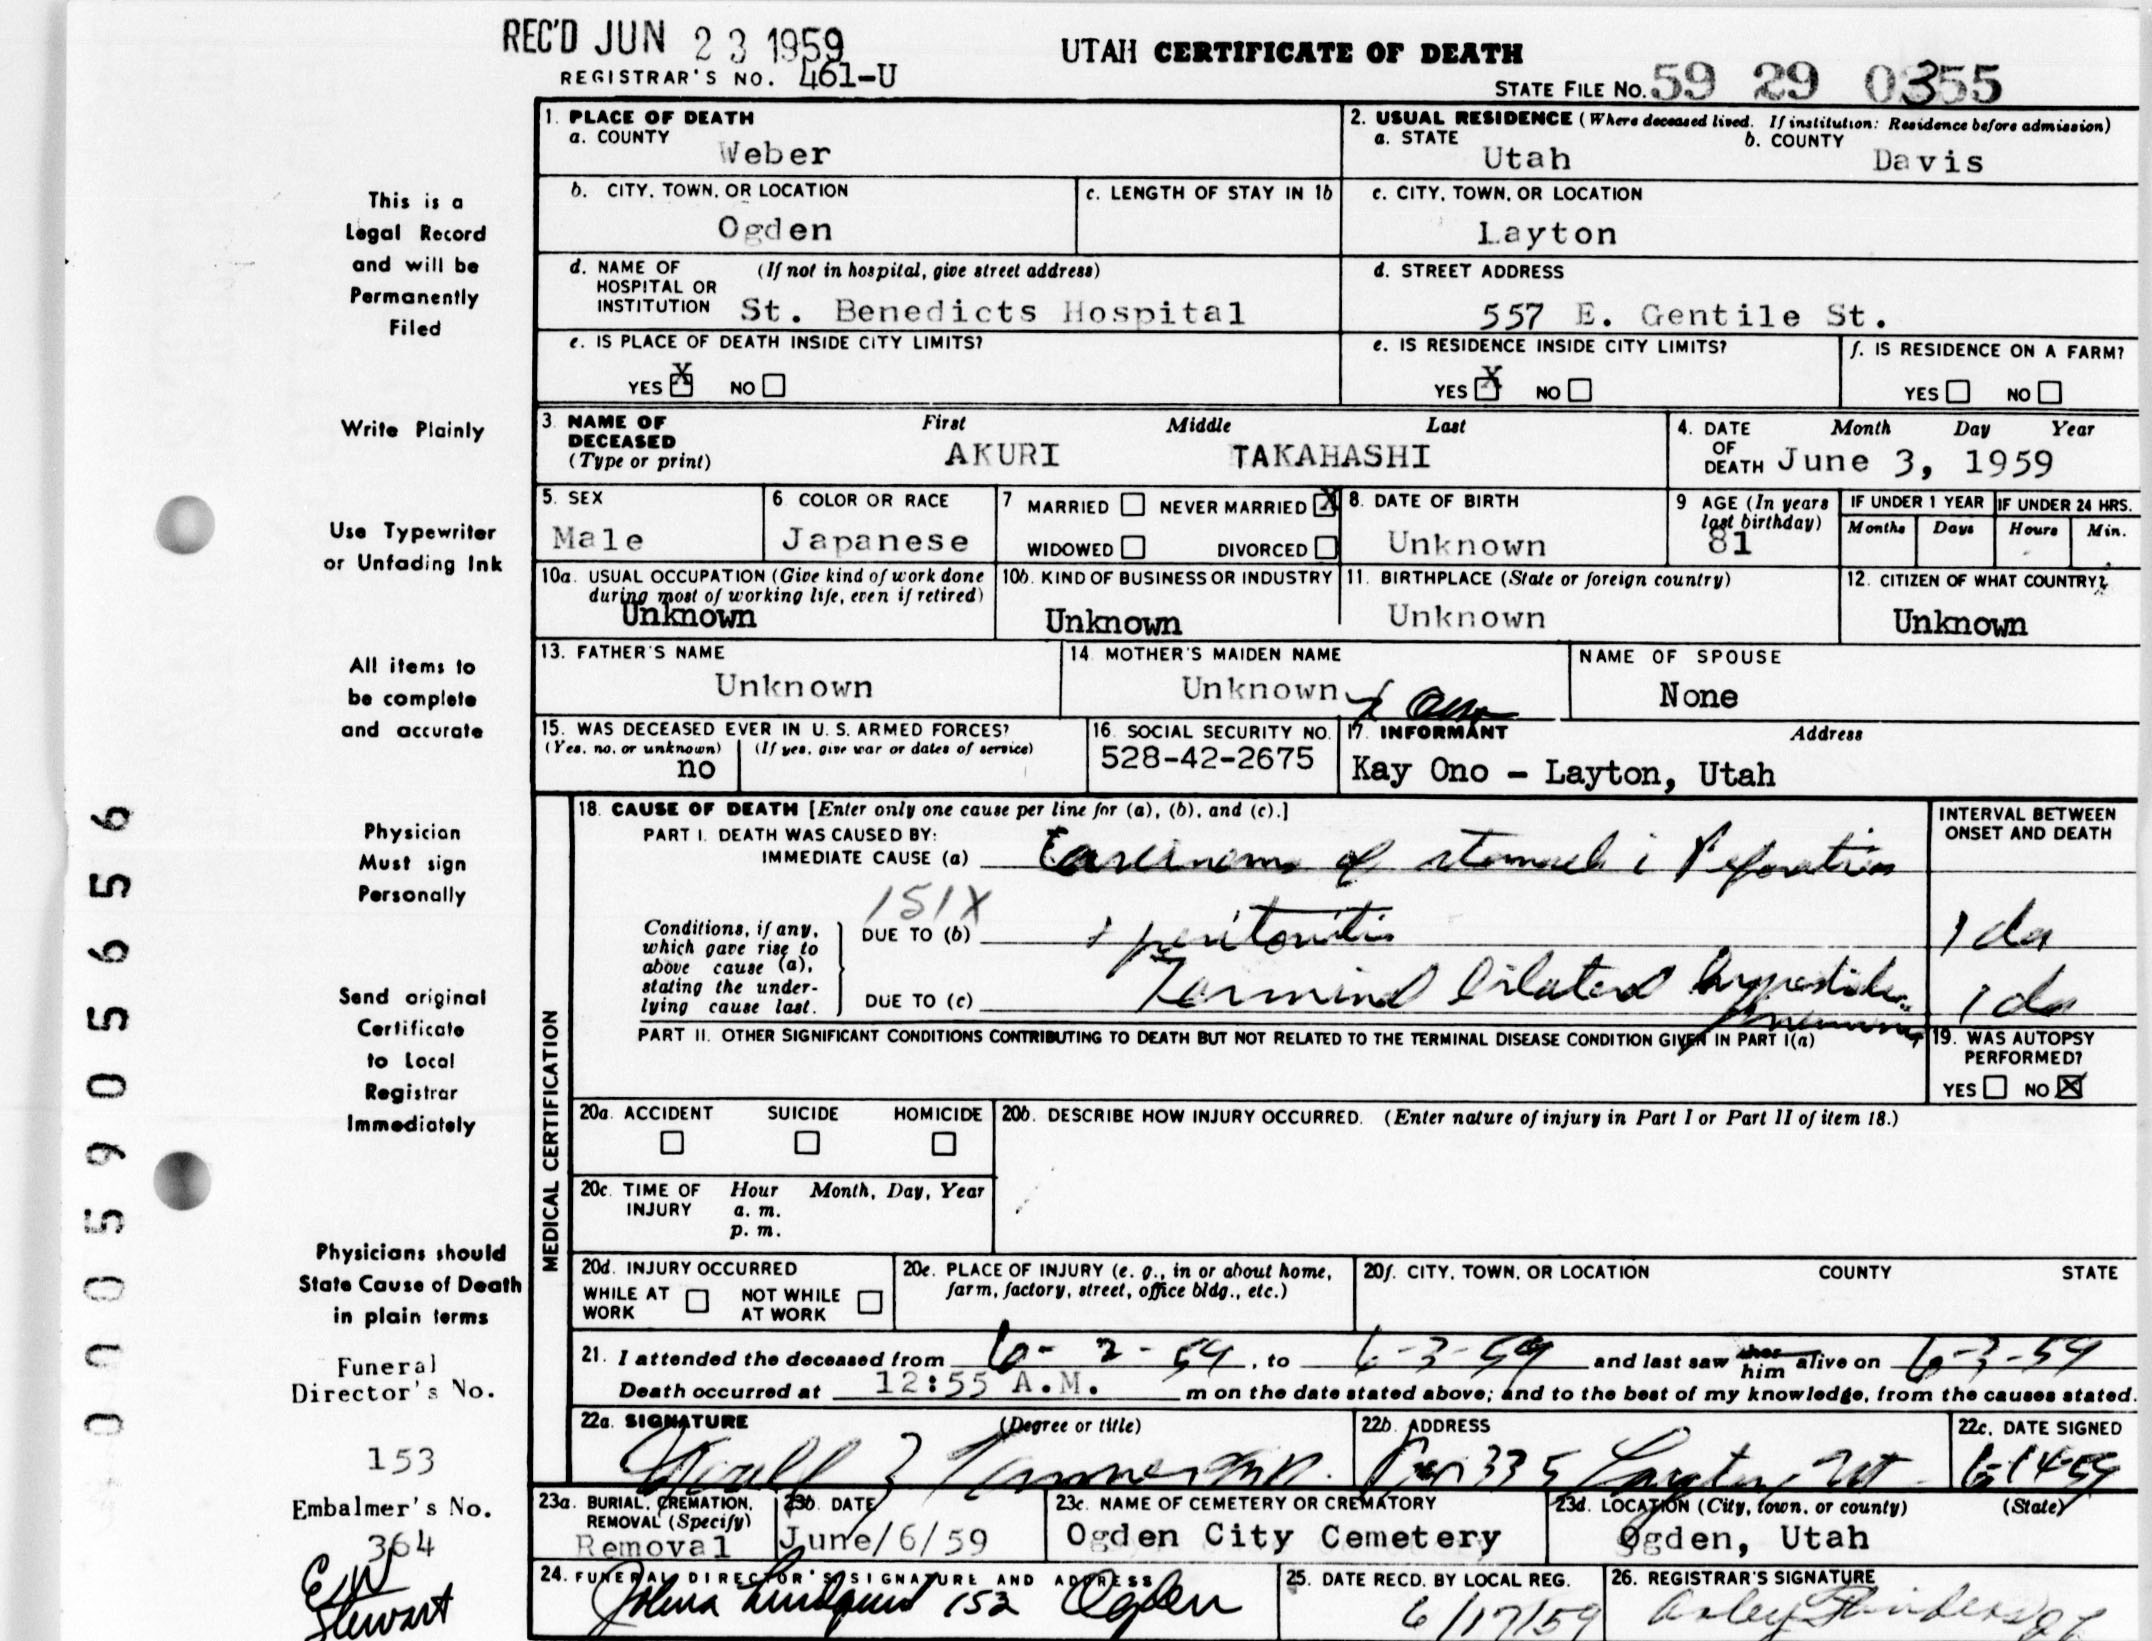 REC'D JUN 23 1959
REGISTRAR'S NO. 461-U
UTAH CERTIFICATE OF DEATH
STATE FILE NO. 59 29 0355
1. PLACE OF DEATH
a. COUNTY Weber
2. USUAL RESIDENCE (Where deceased lived. If institution: Residence before admission)
a. STATE Utah b. COUNTY Davis
b. CITY, TOWN, OR LOCATION Ogden
c. LENGTH OF STAY IN 1b
c. CITY, TOWN, OR LOCATION Layton
d. NAME OF HOSPITAL OR INSTITUTION (If not in hospital, give street address) St. Benedicts Hospital
d. STREET ADDRESS 557 E. Gentile St.
e. IS PLACE OF DEATH INSIDE CITY LIMITS?
YES X NO
e. IS RESIDENCE INSIDE CITY LIMITS?
YES X NO
f. IS RESIDENCE ON A FARM?
YES NO
3. NAME OF DECEASED (Type or print)
First Middle Last
AKURI TAKAHASHI
4. DATE OF DEATH Month Day Year
June 3, 1959
5. SEX Male
6. COLOR OR RACE Japanese
7 MARRIED NEVER MARRIED X
WIDOWED DIVORCED
8. DATE OF BIRTH Unknown
9 AGE (In years last birthday) 81
IF UNDER 1 YEAR Months Days
IF UNDER 24 HRS. Hours Min.
10a. USUAL OCCUPATION (Give kind of work done during most of working life, even if retired) Unknown
10b. KIND OF BUSINESS OR INDUSTRY Unknown
11. BIRTHPLACE (State or foreign country) Unknown
12. CITIZEN OF WHAT COUNTRY? Unknown
13. FATHER'S NAME Unknown
14. MOTHER'S MAIDEN NAME Unknown
NAME OF SPOUSE None
15. WAS DECEASED EVER IN U. S. ARMED FORCES?
(Yes, no, or unknown) (If yes, give war or dates of service)
no
16. SOCIAL SECURITY NO. 528-42-2675
17. INFORMANT Address
Kay Ono - Layton, Utah
MEDICAL CERTIFICATION
18. CAUSE OF DEATH [Enter only one cause per line for (a), (b), and (c).]
INTERVAL BETWEEN ONSET AND DEATH
PART I. DEATH WAS CAUSED BY:
IMMEDIATE CAUSE (a) Carcinoma of stomach
151X
Conditions, if any, which gave rise to above cause (a), stating the underlying cause last.
DUE TO (b) peritonitis 1 da
DUE TO (c) Terminal bilateral hypostatic pneumonia 1 da
PART II. OTHER SIGNIFICANT CONDITIONS CONTRIBUTING TO DEATH BUT NOT RELATED TO THE TERMINAL DISEASE CONDITION GIVEN IN PART I(a)
19. WAS AUTOPSY PERFORMED?
YES NO X
20a. ACCIDENT SUICIDE HOMICIDE
20b. DESCRIBE HOW INJURY OCCURRED. (Enter nature of injury in Part I or Part II of item 18.)
20c. TIME OF INJURY Hour Month, Day, Year
a. m.
p. m.
20d. INJURY OCCURRED
WHILE AT WORK NOT WHILE AT WORK
20e. PLACE OF INJURY (e. g., in or about home, farm, factory, street, office bldg., etc.)
20f. CITY, TOWN, OR LOCATION COUNTY STATE
21. I attended the deceased from 6-2-59, to 6-3-59 and last saw her him alive on 6-3-59
Death occurred at 12:55 A.M. m on the date stated above; and to the best of my knowledge, from the causes stated.
22a. SIGNATURE (Degree or title)
22b. ADDRESS Box 335 Layton, Ut
22c. DATE SIGNED 6-14-59
23a. BURIAL, CREMATION, REMOVAL (Specify) Removal
23b. DATE June/6/59
23c. NAME OF CEMETERY OR CREMATORY Ogden City Cemetery
23d. LOCATION (City, town, or county) (State) Ogden, Utah
24. FUNERAL DIRECTOR'S SIGNATURE AND ADDRESS
Lindquist 152 Ogden
25. DATE RECD. BY LOCAL REG. 6/17/59
26. REGISTRAR'S SIGNATURE
This is a
Legal Record
and will be
Permanently
Filed
Write Plainly
Use Typewriter
or Unfading Ink
All items to
be complete
and accurate
Physician
Must sign
Personally
Send original
Certificate
to Local
Registrar
Immediately
Physicians should
State Cause of Death
in plain terms
Funeral
Director's No.
153
Embalmer's No.
364
E W
Stewart
0005905656